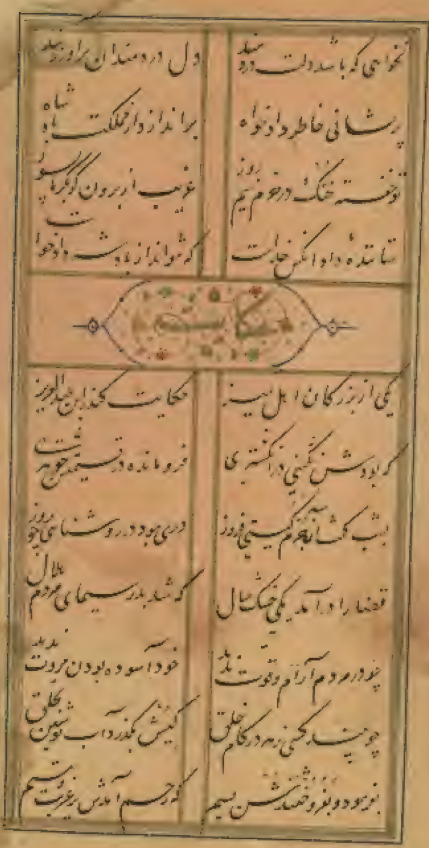 نخواهی که باشد دلت دردمند
دل دردمندان برآور ز بند
پریشانی خاطر دادخواه
براندازد از مملکت پادشاه
تو خفته خنک در حرم نیم روز
غریب از برون گو بگرما بسوز
ستاننده داد آنکس خداست
که نتواند از پادشه دادخواست
حکایت
یکی از بزرگان اهل تمیز
حکایت کند ز ابن عبدالعزیز
که بودش نگینی در انگشتری
فرو مانده در قیمتش جوهری
بشب گفتی آن جرم گیتی فروز
دری بود در روشنایی چو روز
قضا را درآمد یکی خشک سال
که شد بدر سیمای مردم هلال
چو در مردم آرام و قوت ندید
خود آسوده بودن مروت ندید
چو بیند کسی زهر در کام خلق
کیش بگذرد آب نوشین بحلق
بفرمود و بفروختندش بسیم
که رحم آمدش بر غریب و یتیم